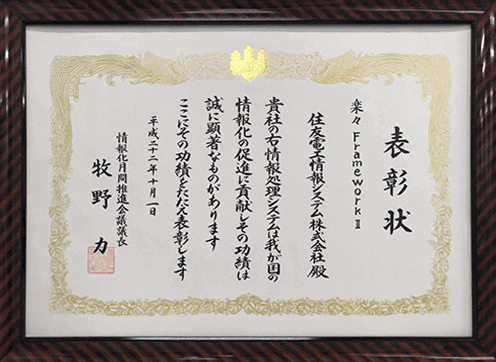 表彰状
楽々FrameworkⅡ
住友電工情報システム株式会社殿
貴社の右情報処理システムは我が国の
情報化の促進に貢献しその功績は
誠に顕著なものがあります
ここにその功績をたたえ表彰します
平成二十二年十月一日
情報化月間推進会議議長
牧野力